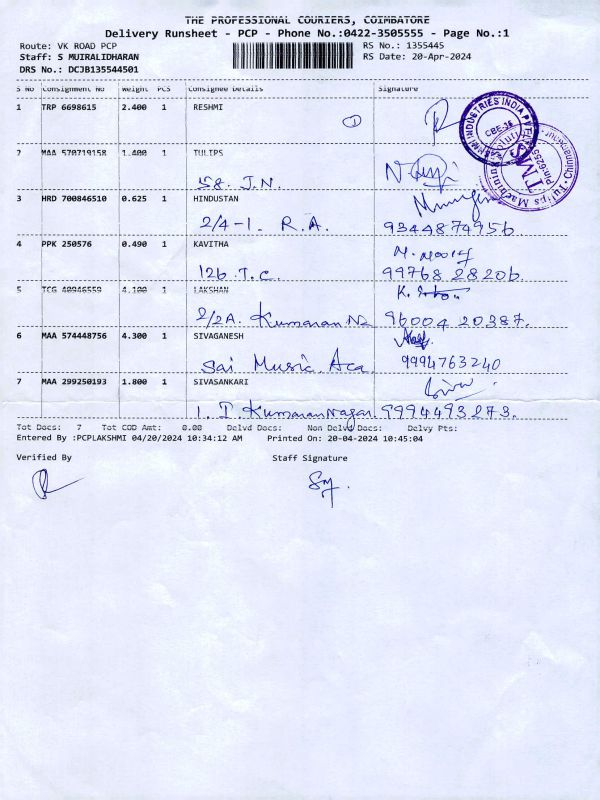 THE PROFESSIONAL COURIERS, COIMBATORE
Delivery Runsheet - PCP - Phone No.:0422-3505555 - Page No.:1
Route: VK ROAD PCP RS No.: 1355445
Staff: S MUIRALIDHARAN RS Date: 20-Apr-2024
DRS No.: DCJB135544501
S No Consignment No Weight PCS Consignee Details Signature
1 TRP 6698615 2.400 1 RESHMI
1
2 MAA 570719158 1.400 1 TULIPS
58. J.N.
3 HRD 700846510 0.625 1 HINDUSTAN
2/4-1. R.A. 9344874956
4 PPK 250576 0.490 1 KAVITHA
126 T.C. 99768 28206.
5 TCG 40946559 4.100 1 LAKSHAN
2/2A. Kumaran Nz 96004 20387.
6 MAA 574448756 4.300 1 SIVAGANESH
Sai Music Aca 9994763240
7 MAA 299250193 1.800 1 SIVASANKARI
1. I. Kumaran Nagar. 9994493273.
Tot Docs: 7 Tot COD Amt: 0.00 Delvd Docs: Non Delvd Docs: Delvy Pts:
Entered By :PCPLAKSHMI 04/20/2024 10:34:12 AM Printed On: 20-04-2024 10:45:04
Verified By Staff Signature